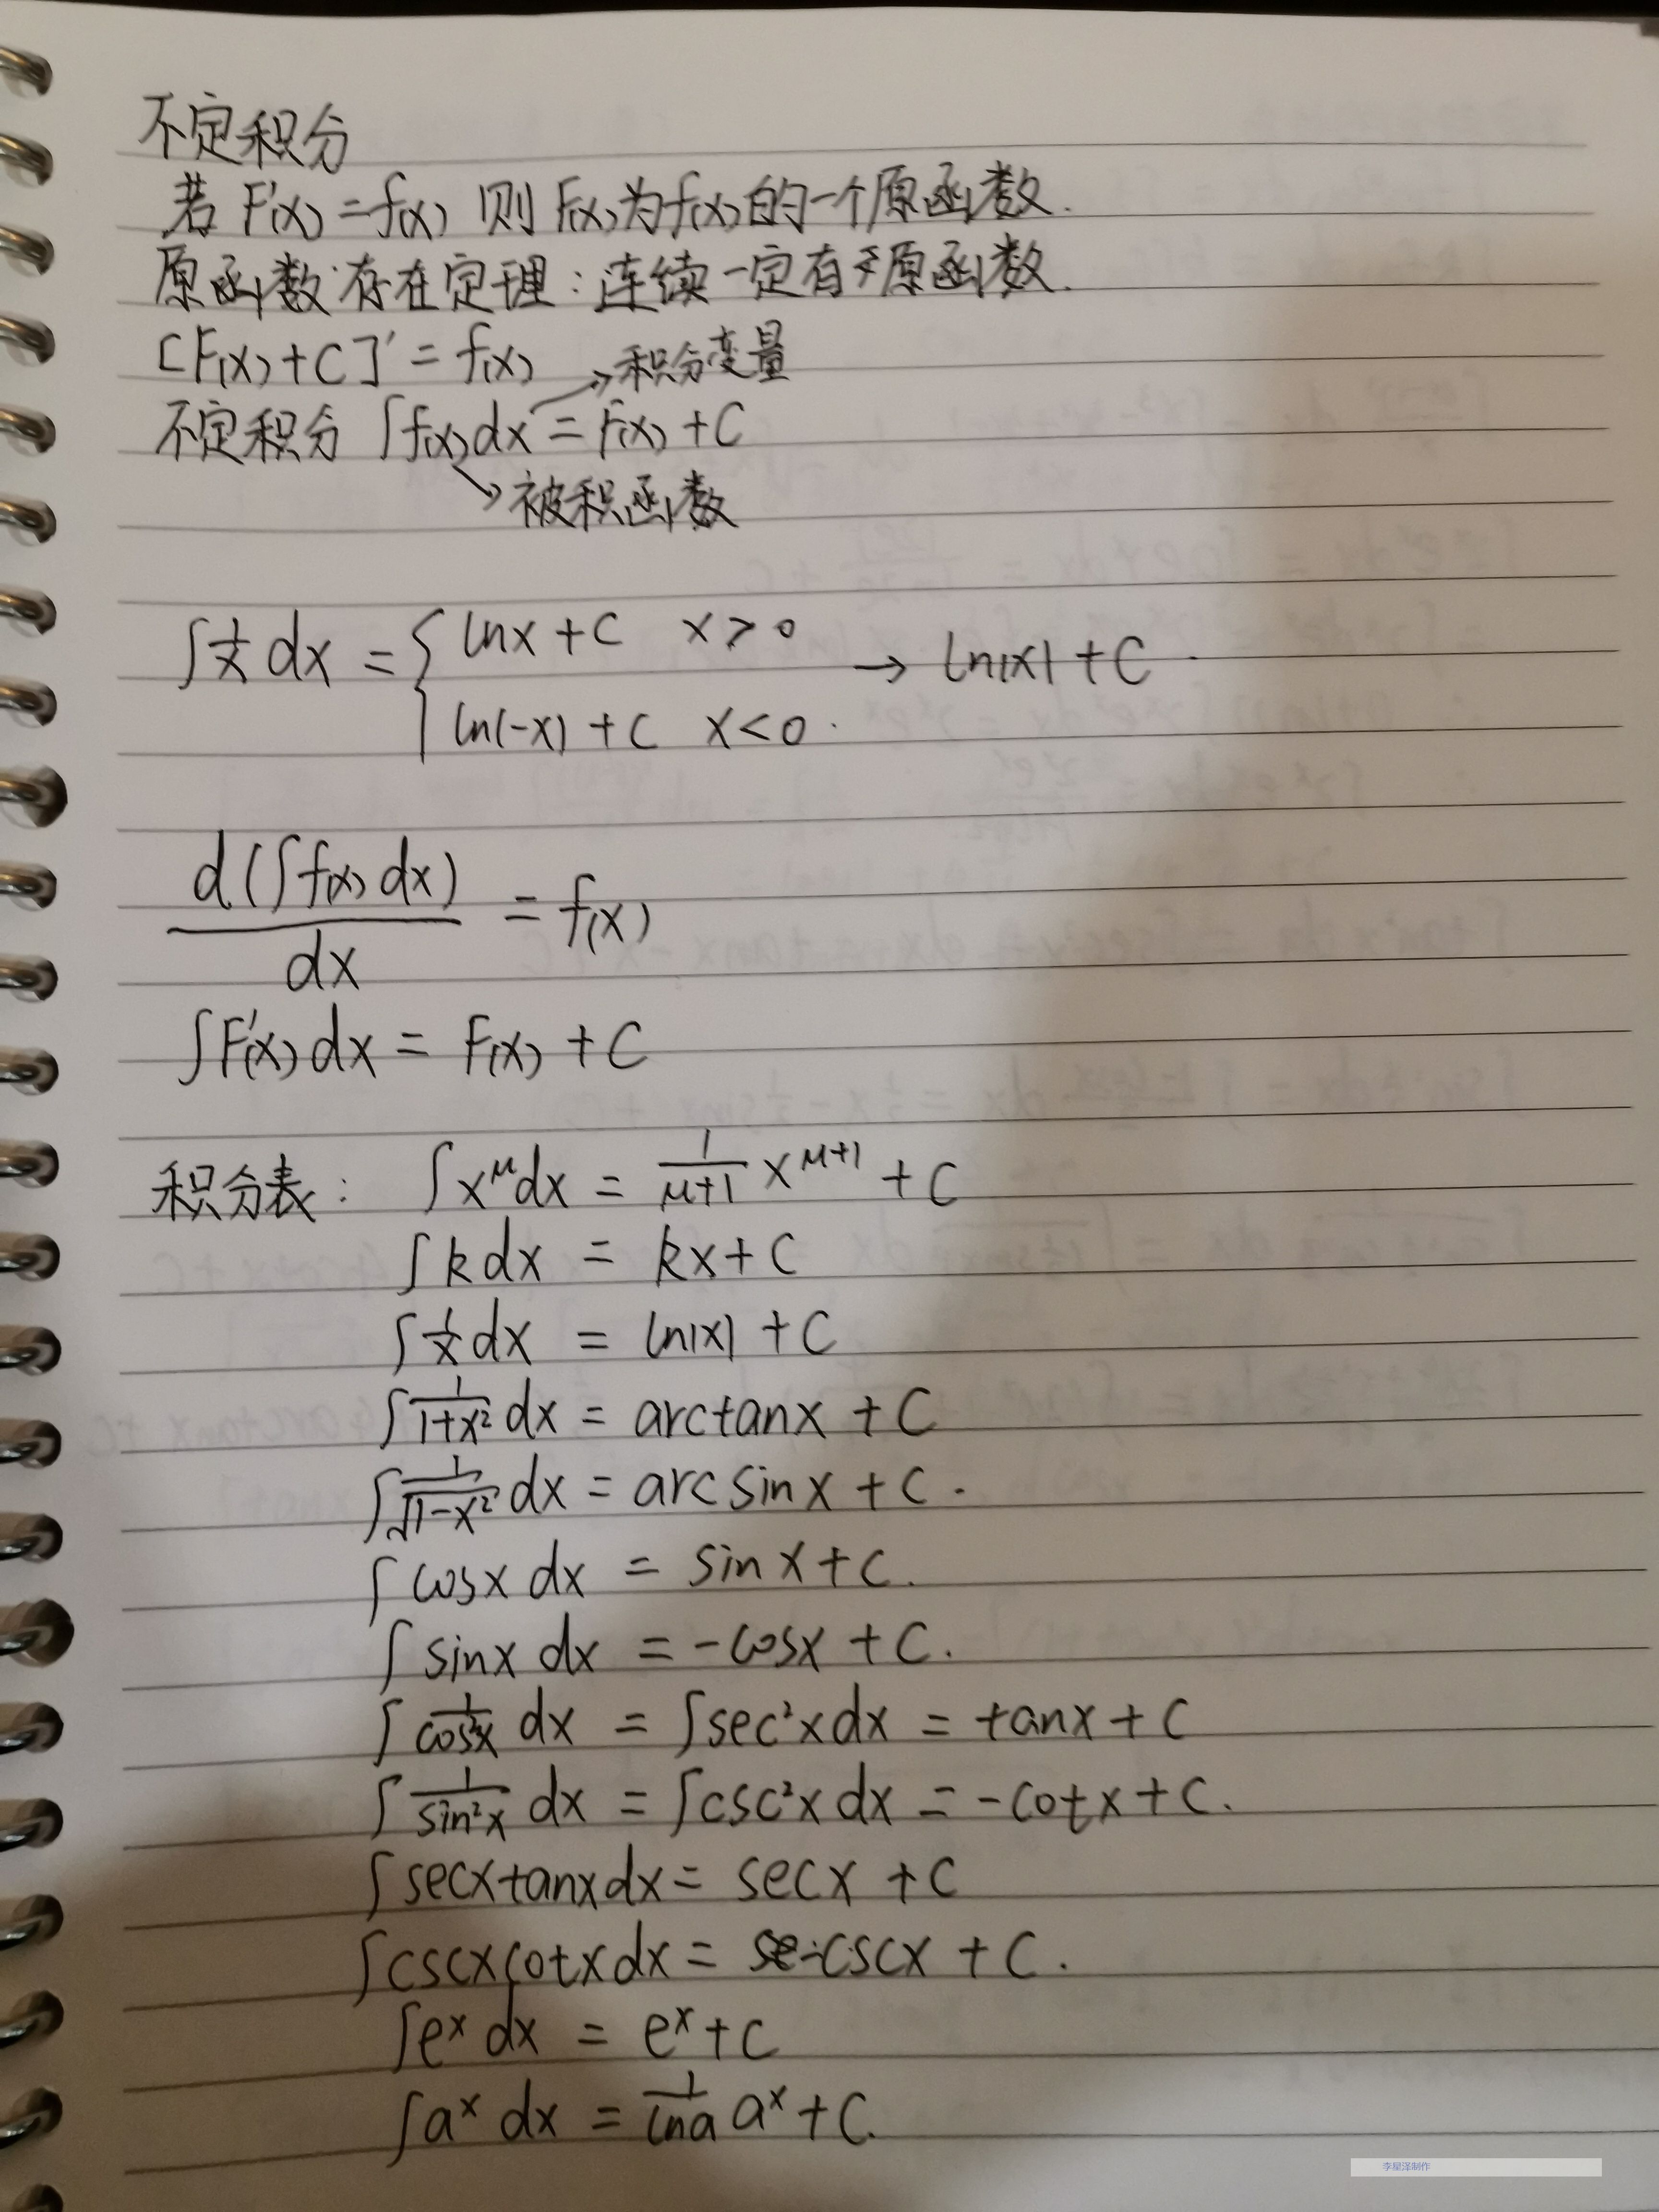 不定积分
若 F'(x) = f(x) 则 F(x)为f(x)的一个原函数.
原函数存在定理:连续一定有原函数.
[F(x)+C]' = f(x) →积分变量
不定积分 ∫f(x)dx = F(x)+C
→被积函数
∫1/x dx = { lnx+C x>0 → ln|x|+C.
ln(-x)+C x<0.
d(∫f(x)dx)/dx = f(x)
∫F'(x)dx = F(x)+C
积分表: ∫x^μ dx = 1/(μ+1) x^(μ+1) + C
∫k dx = kx+C
∫1/x dx = ln|x|+C
∫1/(1+x²) dx = arctanx + C
∫1/√(1-x²) dx = arcsinx + C.
∫cosx dx = sinx+C.
∫sinx dx = -cosx+C.
∫1/cos²x dx = ∫sec²x dx = tanx+C
∫1/sin²x dx = ∫csc²x dx = -cotx+C.
∫secxtanxdx = secx + C
∫cscxcotxdx = -cscx + C.
∫e^x dx = e^x+C
∫a^x dx = 1/lna a^x+C.
李星泽制作